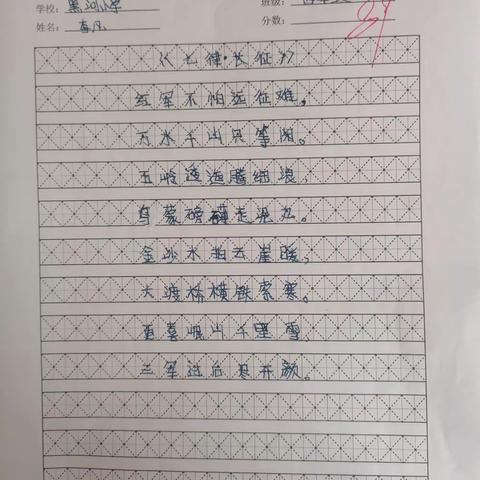 学校：黑河小学 班级：
姓名： 分数：
《七律·长征》
红军不怕远征难，
万水千山只等闲。
五岭逶迤腾细浪，
乌蒙磅礴走泥丸。
金沙水拍云崖暖，
大渡桥横铁索寒。
更喜岷山千里雪，
三军过后尽开颜。